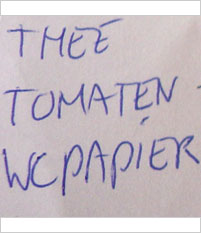 THEE
TOMATEN
WCPAPIER